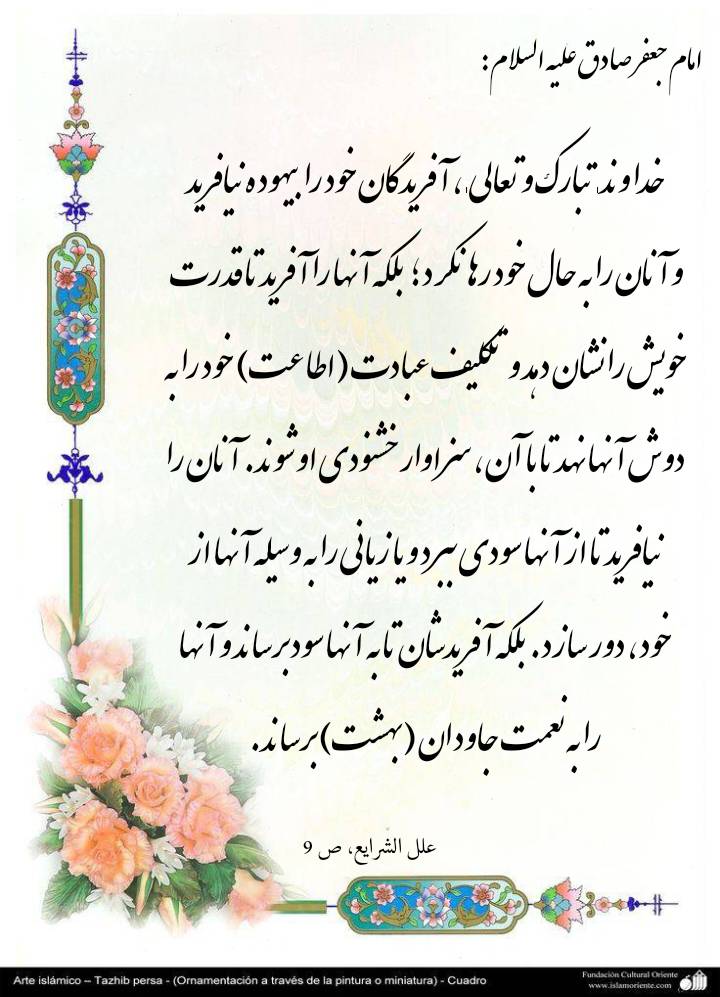 امام جعفر صادق علیه السلام:
خداوند تبارک و تعالی، آفریدگان خود را بیهوده نیافرید
و آنان را به حال خود رها نکرد؛ بلکه آنها را آفرید تا قدرت
خویش را نشان دهد و تکلیف عبادت (اطاعت) خود را به
دوش آنها نهد تا با آن، سزاوار خشنودی او شوند. آنان را
نیافرید تا از آنها سودی ببرد و یا زیانی را به وسیله آنها از
خود، دور سازد. بلکه آفریدشان تا به آنها سود برساند و آنها
را به نعمت جاودان (بهشت) برساند.
علل الشرایع، ص 9
Arte islámico – Tazhib persa - (Ornamentación a través de la pintura o miniatura) - Cuadro
Fundación Cultural Oriente
www.islamoriente.com